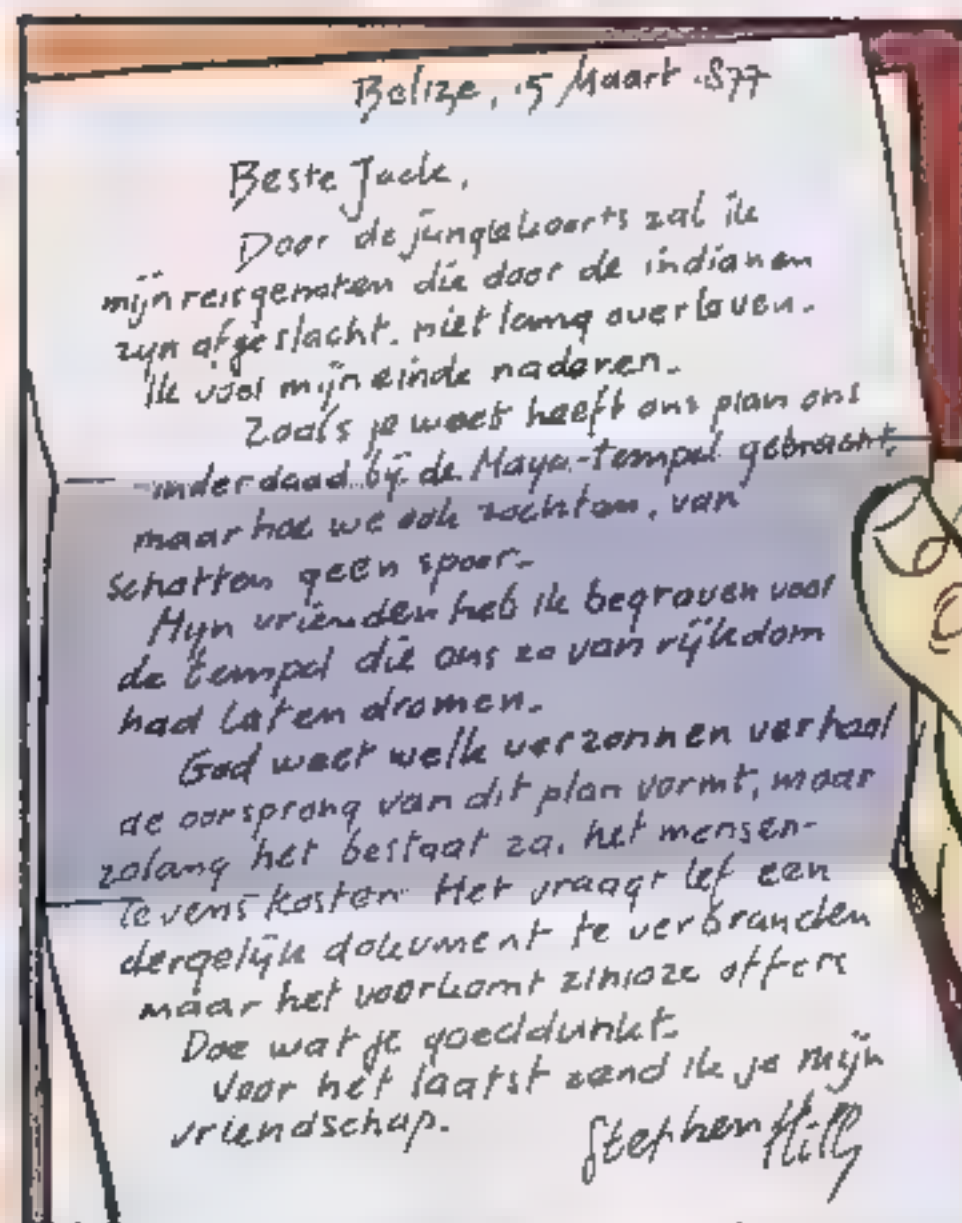 Belize, 15 Maart 1877
Beste Jack,
Door de junglekoorts zal ik
mijn reisgenoten die door de indianen
zijn afgeslacht, niet lang overleven.
Ik voel mijn einde naderen.
Zoals je weet heeft ons plan ons
inderdaad bij de Maya-tempel gebracht,
maar hoe we ook zochten, van
schatten geen spoor.
Mijn vrienden heb ik begraven voor
de tempel die ons zo van rijkdom
had laten dromen.
God weet welk verzonnen verhaal
de oorsprong van dit plan vormt, maar
zolang het bestaat zal het mensen-
levens kosten. Het vraagt lef een
dergelijk dokument te verbranden
maar het voorkomt zinloze offers
Doe wat je goeddunkt.
Voor het laatst zend ik je mijn
vriendschap. Stephen Hill